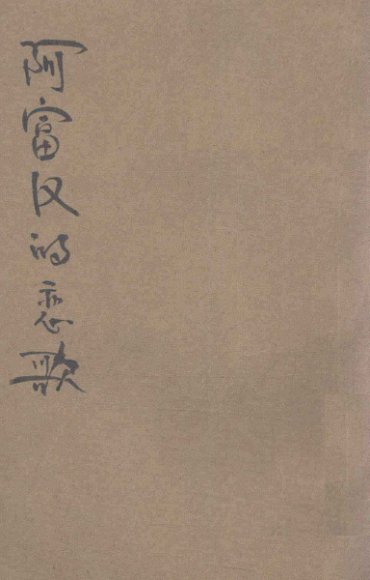 阿富汉的恋歌